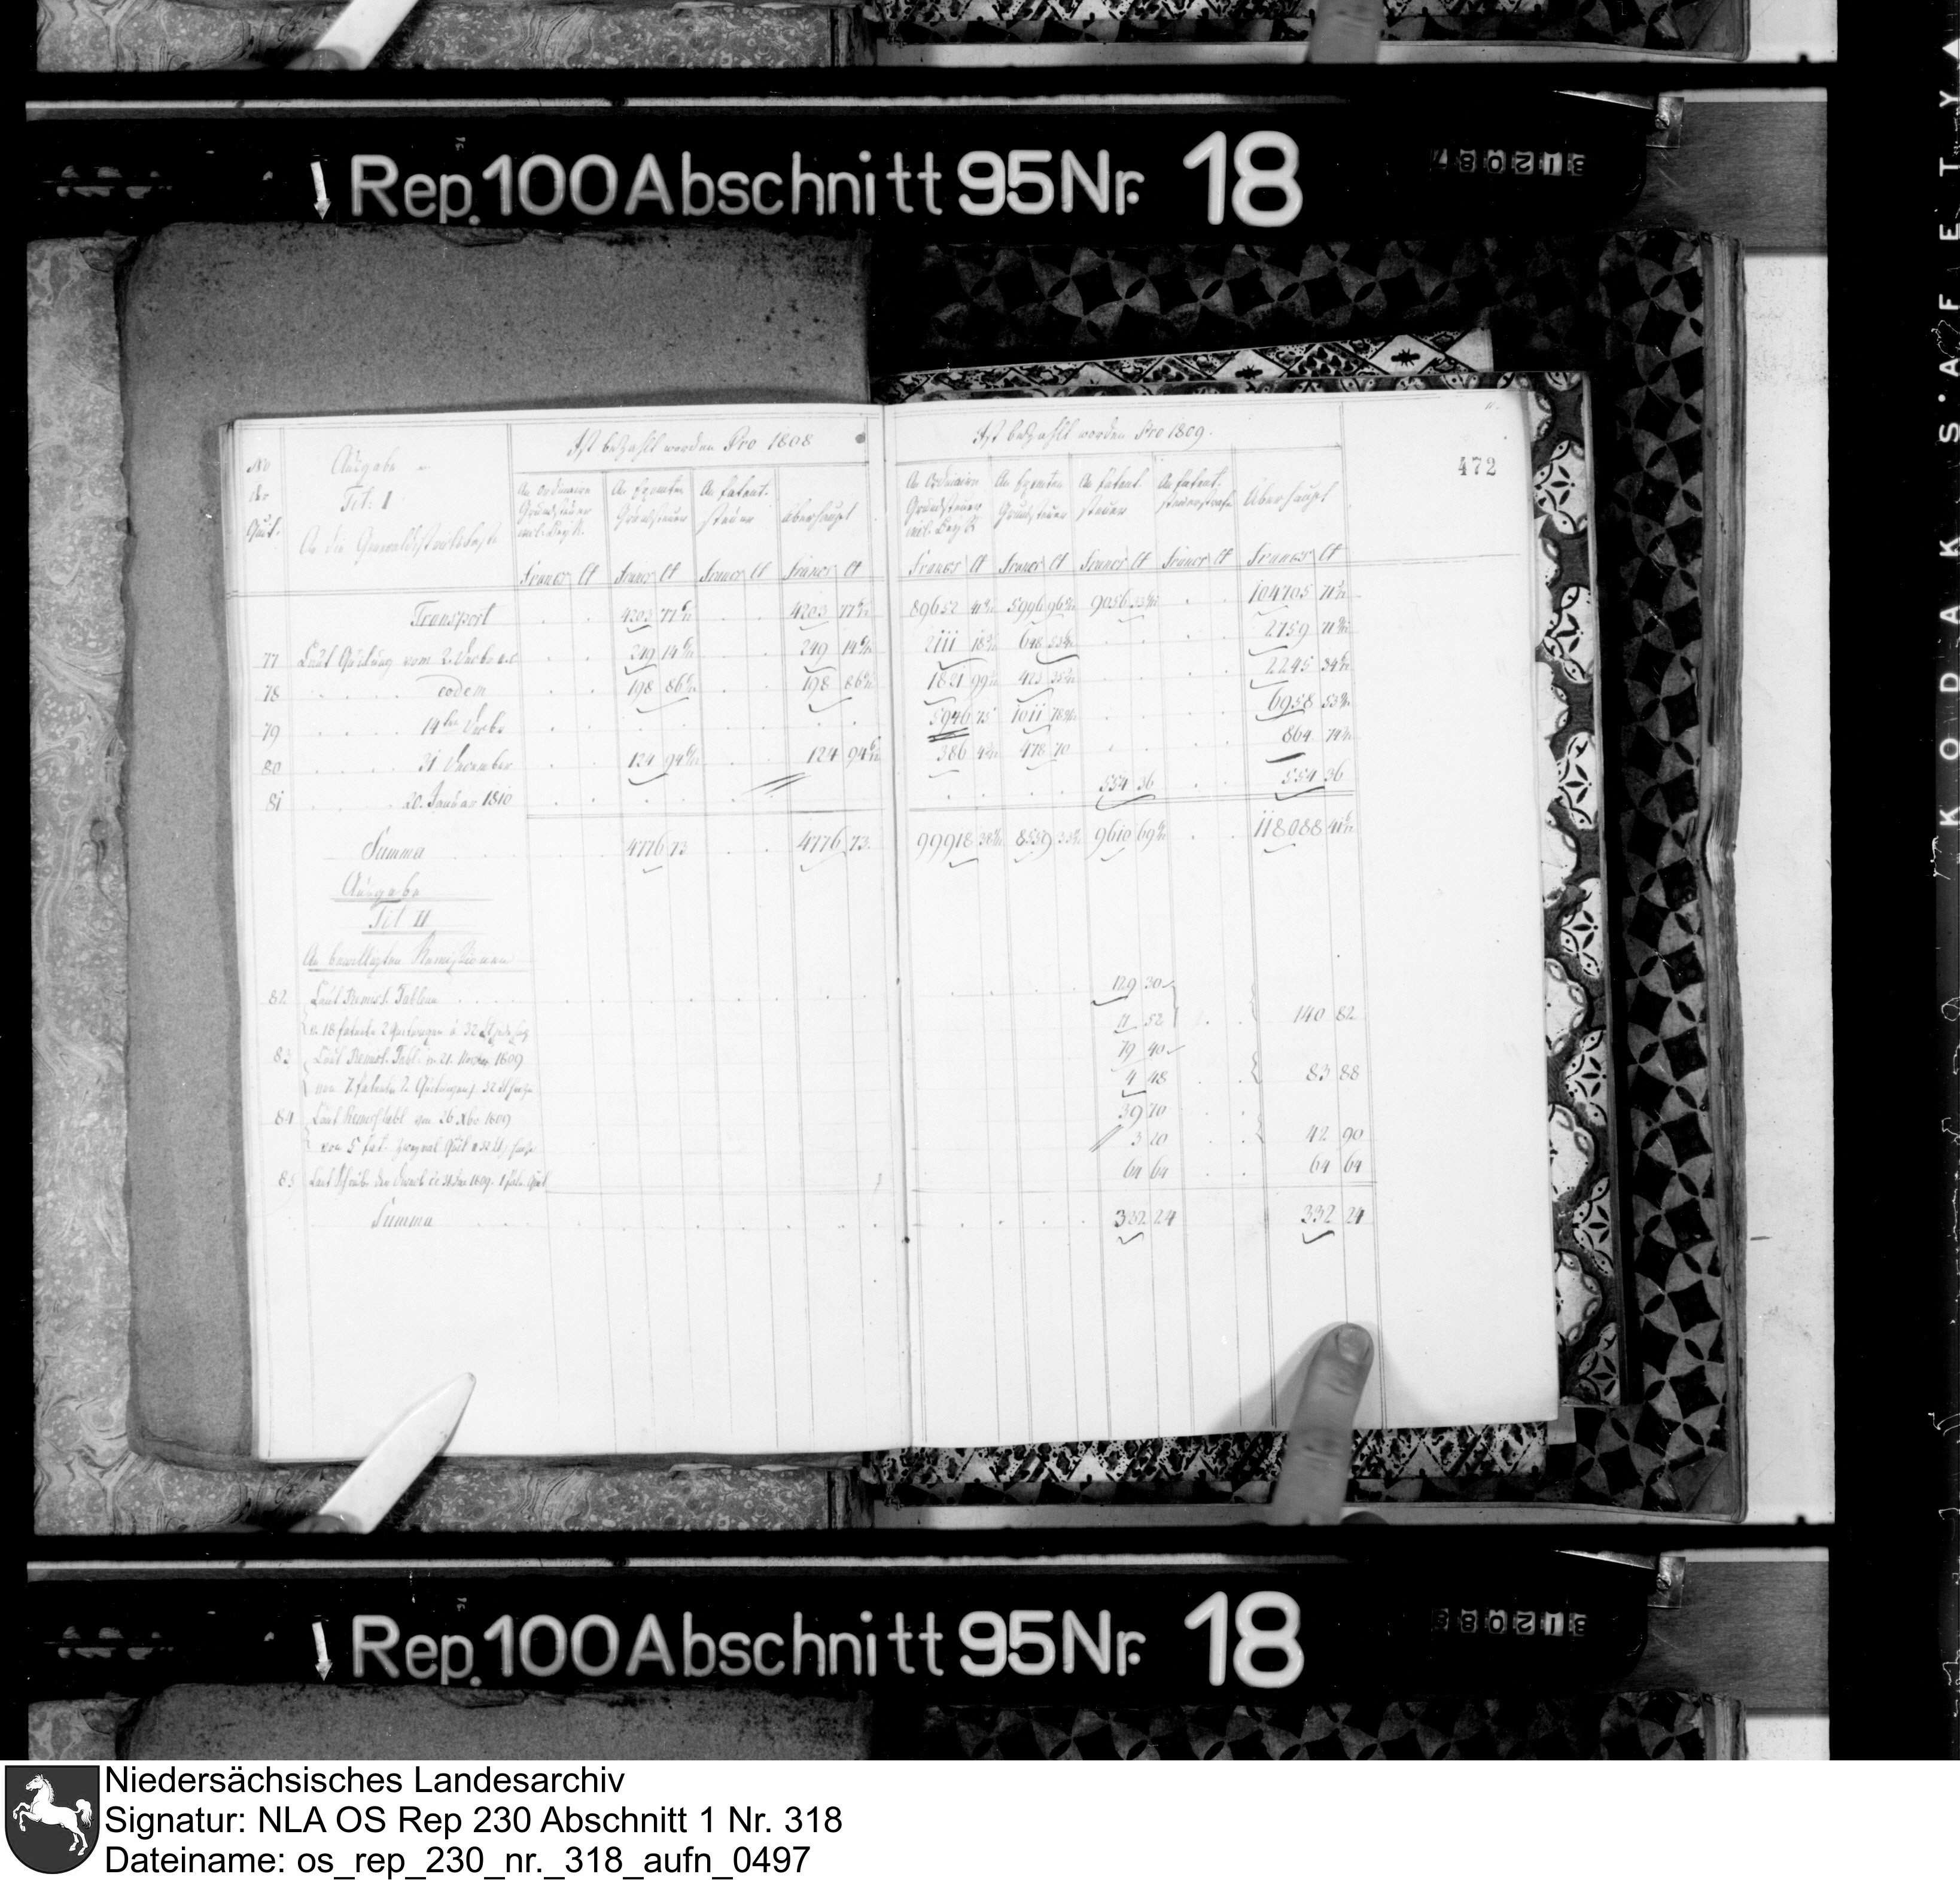 Rep. 100 Abschnitt 95 Nr. 18
312087
472
No der Quit.
Ausgabe
Tit: I
An die General Districts Casse
Ist bezahlt worden Pro 1808
An Ordinairer Grundsteuer
An Exemten Grundsteuer
An Patent. steuer
überhaupt
Francs Ct Francs Ct Francs Ct Francs Ct
Ist bezahlt worden Pro 1809.
An Ordinairer Grundsteuer
An Exemten Grundsteuer
An Patent. steuer
An Patent. steuerstrafe
Überhaupt
Francs Ct Francs Ct Francs Ct Francs Ct Francs Ct
Transport 4203 77 4203 77 89652 41 5996 96 9056 33 104705 71
77 Laut Quitung vom 2. 249 14 249 14 2111 18 648 53 2759 71
78 eodem 198 86 198 86 1821 99 423 35 2245 34
79 14 5946 75 1011 78 6958 53
80 31 December 124 94 124 94 386 4 478 70 864 74
81 20. Januar 1810 554 36 554 36
Summa 4776 73 4776 73 99918 38 8559 33 9610 69 118088 41
Ausgabe
Tit II
An bewilligten Remissionen
82 Laut Remiss. Tableau 129 30
v. 18 Patente 2 Quitungen à 32 Ct 11 52 140 82
83 Laut Remiss. Tabl. 21. 1809 79 40
von 7. Patente 2. Quitungen 32 4 48 83 88
84 Laut Remiss tabl vom 26. Xbr 1809 39 70
von 5 Pat. 3 20 42 90
85 Laut 1809. 64 64 64 64
Summa 332 24 332 24
Rep. 100 Abschnitt 95 Nr. 18
312088
KODAK SAFETY
Niedersächsisches Landesarchiv
Signatur: NLA OS Rep 230 Abschnitt 1 Nr. 318
Dateiname: os_rep_230_nr._318_aufn_0497